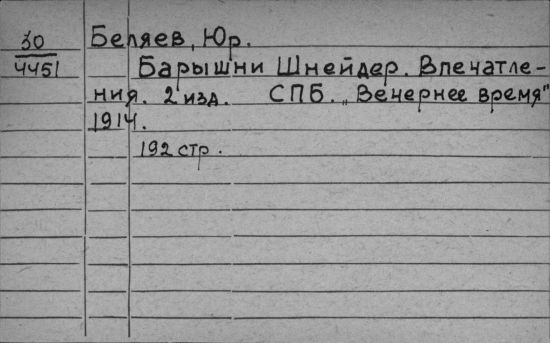 30
4451
Беляев, Юр.
Барышни Шнейдер. Впечатле-
ния. 2 изд. СПБ. „Вечернее время"
1914.
192 стр.